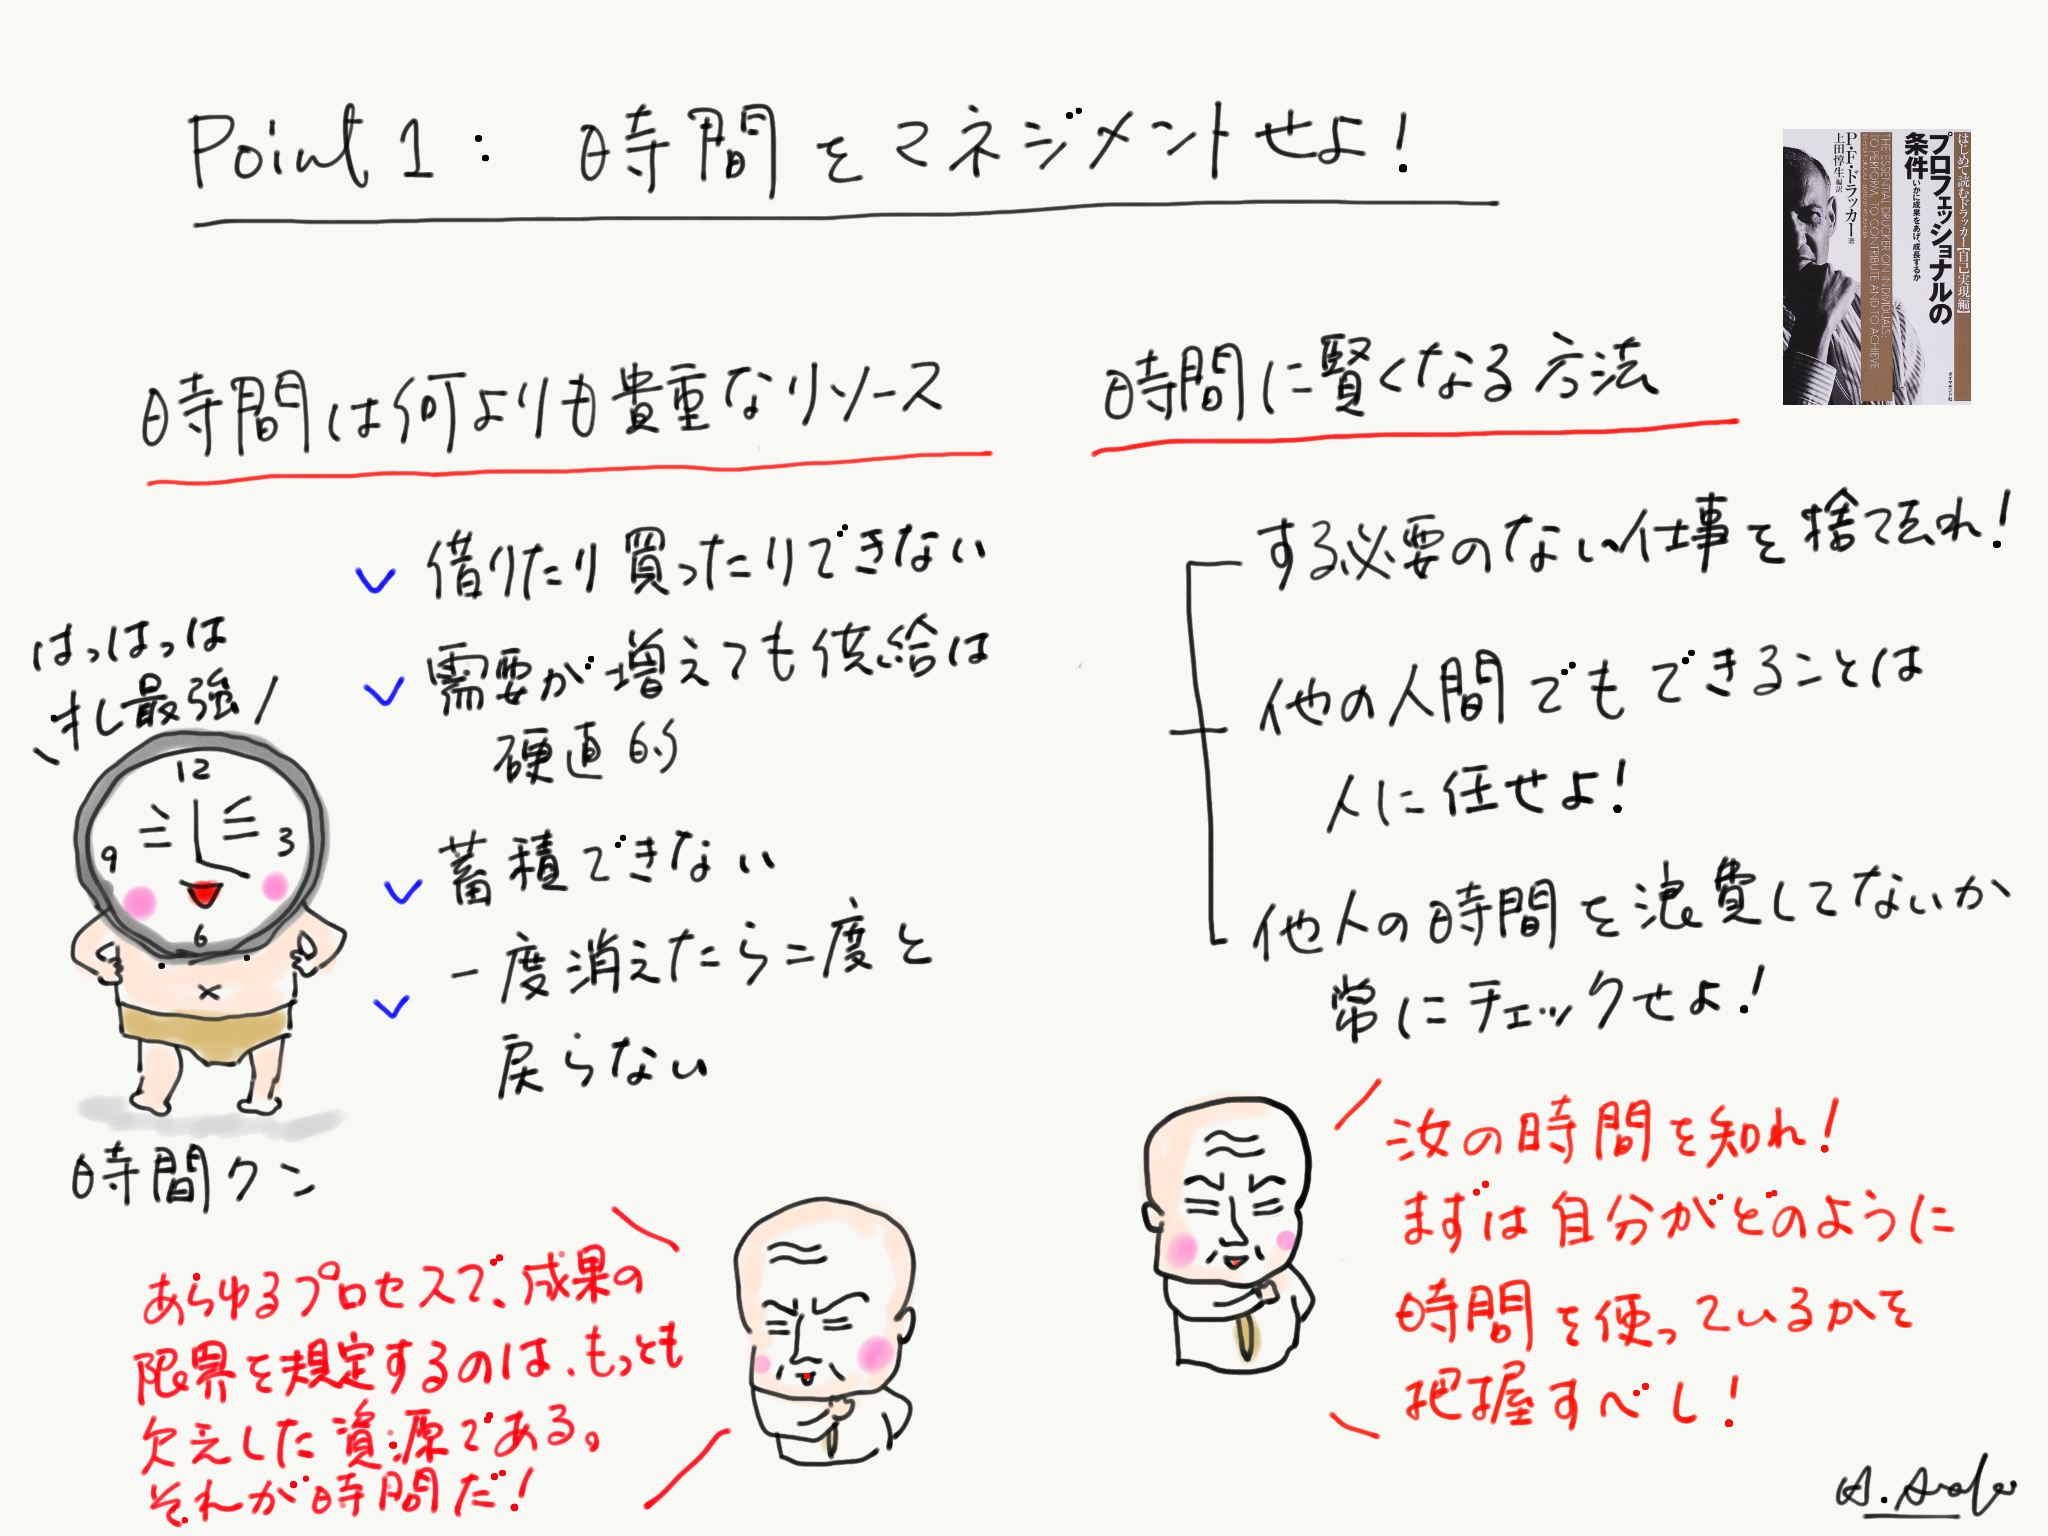 Point 1 : 時間をマネジメントせよ!
はじめて読むドラッカー【自己実現編】
プロフェッショナルの
条件
いかに成果をあげ、成長するか
THE ESSENTIAL DRUCKER ON INDIVIDUALS:
TO PERFORM, TO CONTRIBUTE AND TO ACHIEVE
P・F・ドラッカー 著
上田惇生 編訳
ダイヤモンド社
時間は何よりも貴重なリソース
借りたり買ったりできない
需要が増えても供給は
硬直的
蓄積できない
一度消えたら二度と
戻らない
はっはっは
オレ最強!
12
9
3
6
時間クン
あらゆるプロセスで、成果の
限界を規定するのは、もっとも
欠乏した資源である。
それが時間だ!
時間に賢くなる方法
する必要のない仕事を捨て去れ!
他の人間でもできることは
人に任せよ!
他人の時間を浪費してないか
常にチェックせよ!
汝の時間を知れ!
まずは自分がどのように
時間を使っているかを
把握すべし!